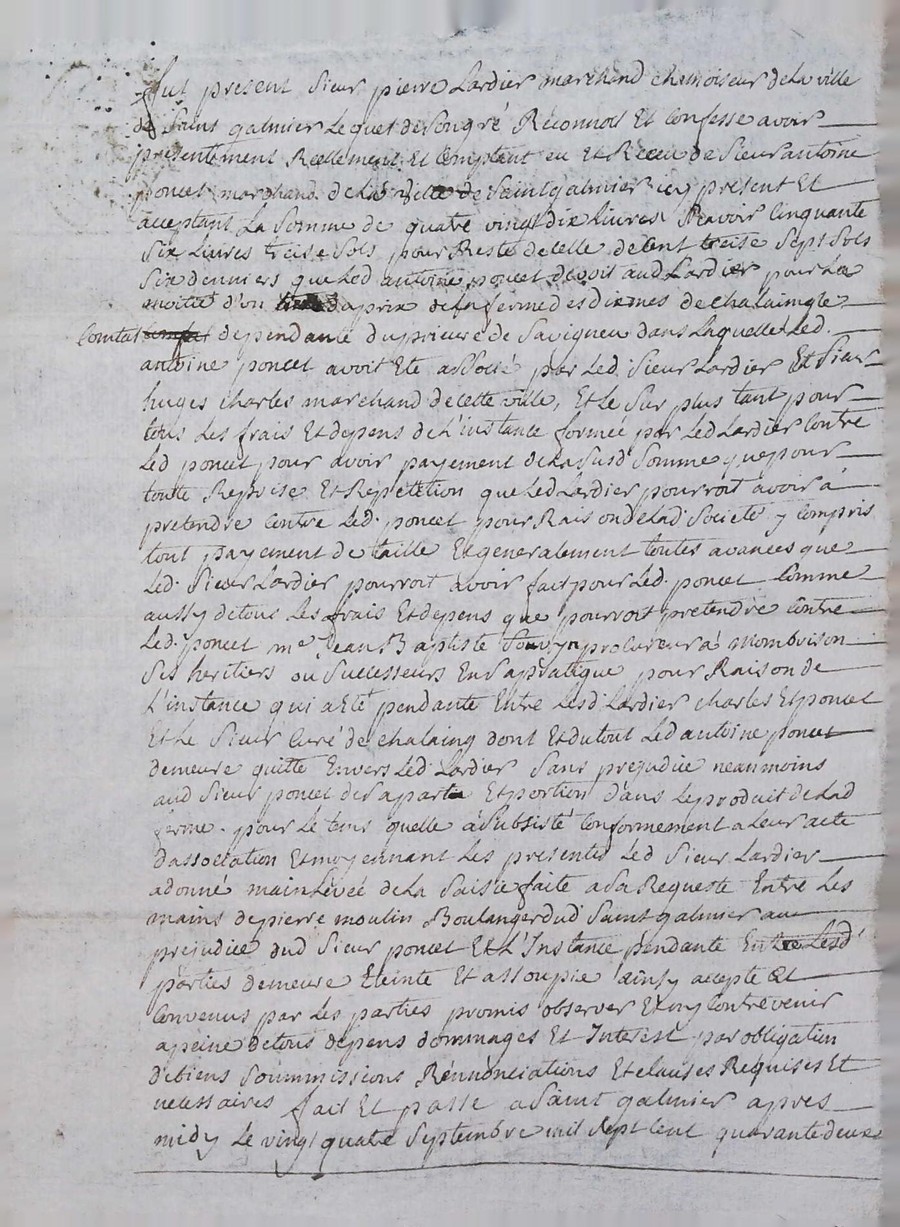 fut present Sieur pierre Lardier marchand chamoiseur de la ville
de Saint galmier Lequel de Son gré Réconnoit Et Confesse avoir
présentement Reellement Et Comptant eu Et Receu de Sieur antoine
poncet marchand de lad. ville de Saint galmier icy present Et
acceptant La Somme de quatre vingt dix livres Scavoir Cinquante
Six Livres treise Sols pour Reste de celle de Cent treise Sept Sols
Six denniers que Led antoine poncet devoit aud Lardier pour La
moitié d'un du prix de la ferme des dixmes de chalaing le
Comtal dependante du prieure de Savigneu dans Laquelle Led.
antoine poncet avoit Eté associé par Led. Sieur Lardier Et Sieur
huges charles marchand de cette ville, Et Le Sur plus tant pour
tous Les frais Et depens de L'instance formée par Led Lardier Contre
Led poncet pour avoir payement de la Susd Somme que pour
toute Reprise Et Repetition que Led Lardier pourroit avoir a
pretendre Contre Led. poncet pour Raison de lad. Societé y Compris
tout payement de taille Et generalement toutes avances que
Led. Sieur Lardier pourroit avoir fait pour Led. poncet Comme
aussy de tous Les frais Et depens que pourroit pretendre Contre
Led. poncet me Jean Baptiste procureur a Mombrison
Ses heritiers ou Successeurs En Sa pratique pour Raison de
L'instance qui a Eté pendante Entre Lesd. Lardier charles Et poncet
Et Le Sieur Curé de chalaing dont Et du tout Led antoine poncet
demeure quitte Envers Led. Lardier Sans prejudice neanmoins
aud Sieur poncet de Sa part Et portion dans Le produit de Lad
ferme. pour Le tems quelle a Subsisté Conformement a Leur acte
dassociation Et moyennant Les presentes Led Sieur Lardier
a donné main Levée de La Saisie faite a Sa Requeste Entre Les
mains de pierre moulin Boulanger dud Saint galmier au
prejudice dud Sieur poncet Et L'Instance pendante Entre Lesd
parties demeure Eteinte Et assoupie ainsy accepté Et
Convenus par Les parties promis observer Et ny Contrevenir
a peine de tous depens dommages Et Interest par obligation
de biens Soummissions Rénnonciations Et clauses Requises Et
necessaires fait Et passé a Saint galmier apres
midy Le vingt quatre Septembre mil Sept Cent quarante deux